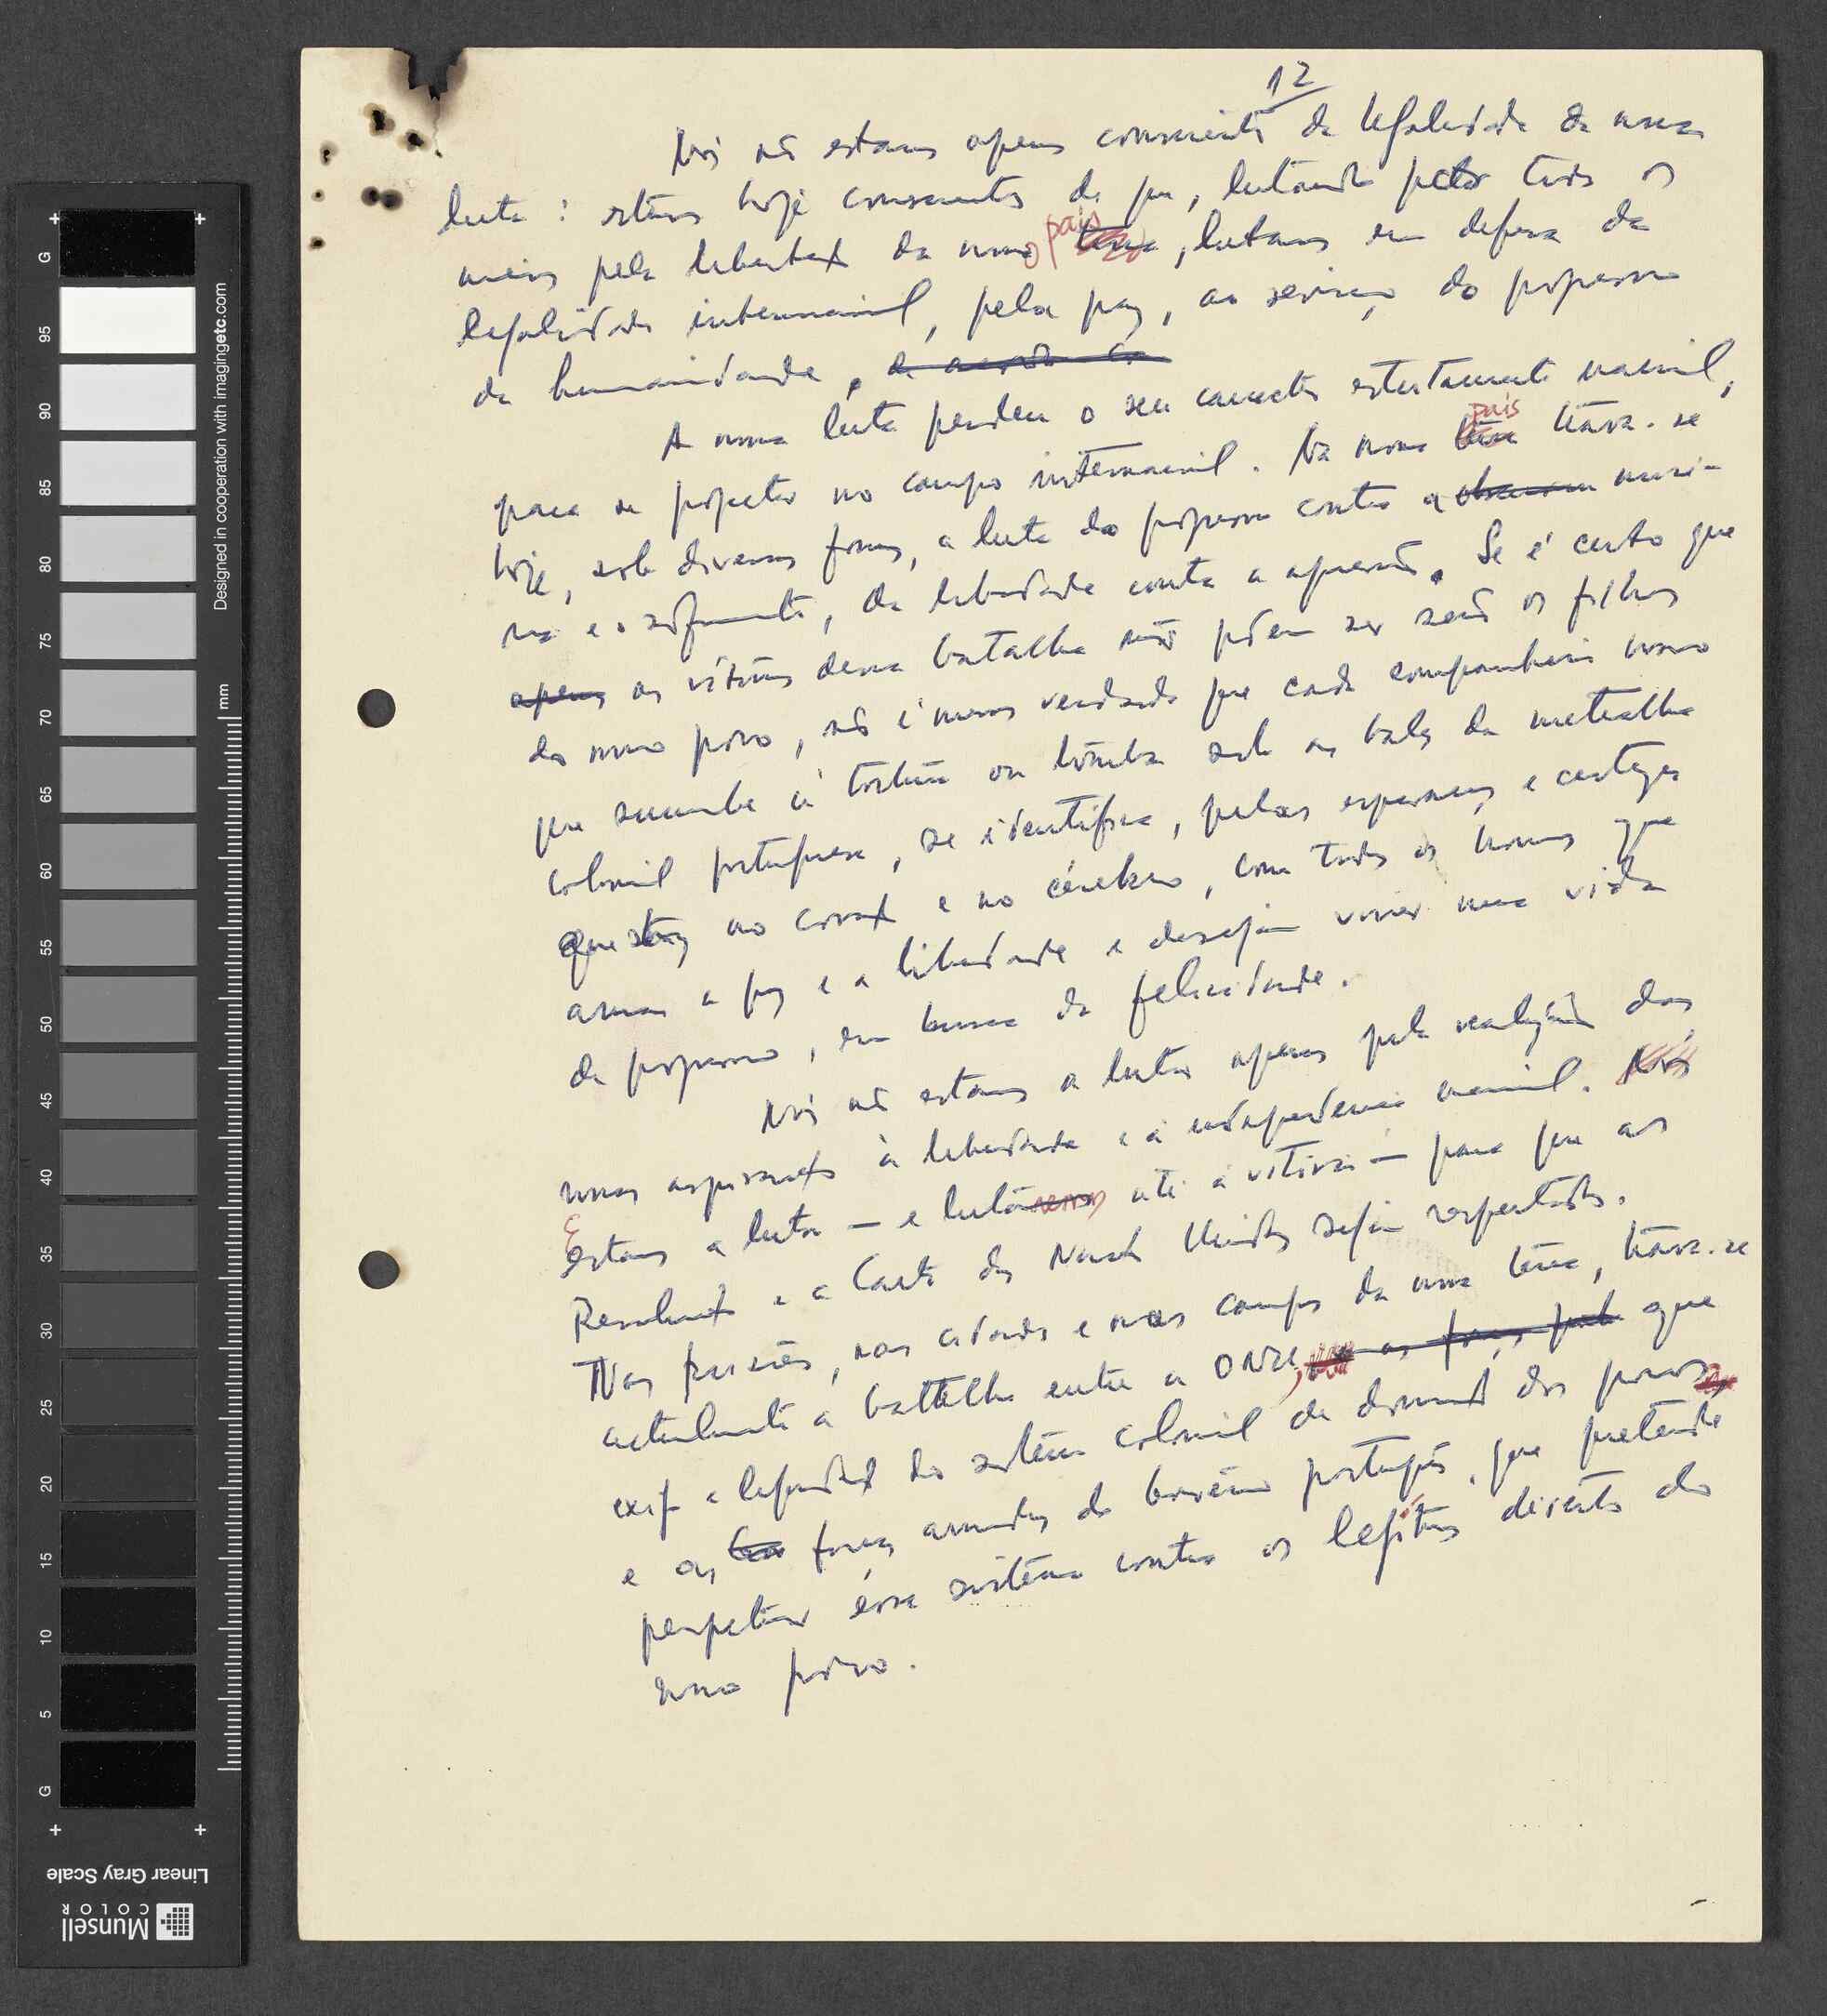 12
Nós não estamos apenas conscientes da legalidade da nossa
luta: estamos hoje conscientes de que, lutando por todos os
meios pela libertação do nosso país, lutamos em defesa da
legalidade internacional, pela paz, ao serviço do progresso
da humanidade.
A nossa luta perdeu o seu caracter estritamente nacional,
para se projectar no campo internacional. No nosso país trava-se
hoje, sob diversas formas, a luta do progresso contra a misé-
ria e o sofrimento, da liberdade contra a opressão. Se é certo que
as vítimas dessa batalha não podem ser senão os filhos
do nosso povo, não é menos verdade que cada companheiro nosso
que sucumbe à tortura ou tomba sob as balas da metralha
colonial portuguesa, se identifica, pelas esperanças e certezas
que no coração e no cérebro, com todos os homens que
amam a paz e a liberdade e desejam viver uma vida
de progresso, em busca da felicidade.
Nós não estamos a lutar apenas pela realização das
nossas aspirações à liberdade e à independência nacional.
Estamos a lutar — e lutaremos até à vitória — para que as
Resoluções e a Carta das Nações Unidas sejam respeitadas.
Nas prisões, nas cidades e nos campos da nossa terra, trava-se
actualmente a batalha entre a ONU, que
exige a liquidação do sistema colonial de dominação dos povos,
e as forças armadas do Governo português, que pretende
perpetuar esse sistema contra os legítimos direitos do
nosso povo.
Designed in cooperation with imagingetc.com
mm
G
95
90
85
80
75
70
65
60
55
50
45
40
35
30
25
20
15
10
5
G
Linear Gray Scale
Munsell
COLOR